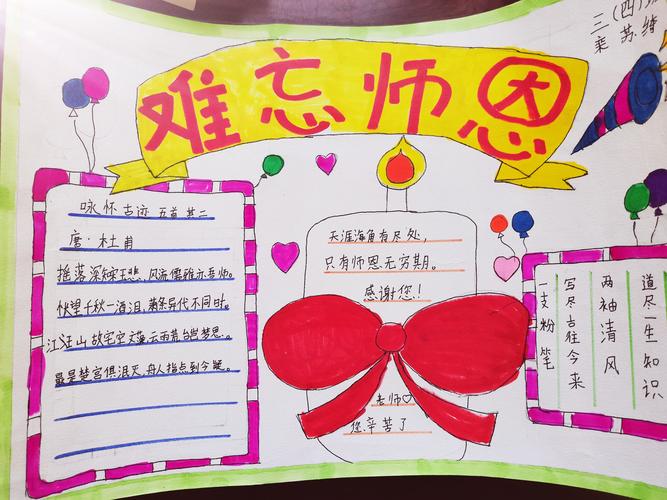 难忘师恩
三(四)
咏怀古迹 五首 其二
唐·杜甫
摇落深知宋玉悲,风流儒雅亦吾师。
怅望千秋一洒泪,萧条异代不同时。
江山故宅空文藻,云雨荒台岂梦思。
最是楚宫俱泯灭,舟人指点到今疑。
天涯海角有尽处,
只有师恩无穷期。
感谢您!
老师♡
您辛苦了
一支粉笔
写尽古往今来
两袖清风
道尽一生知识